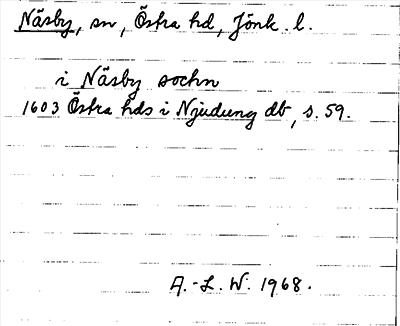 Näsby, sn, Östra hd, Jönk. l.
i Näsby sochn
1603 Östra hds i Njudung db, s. 59.
A.-L. W. 1968.